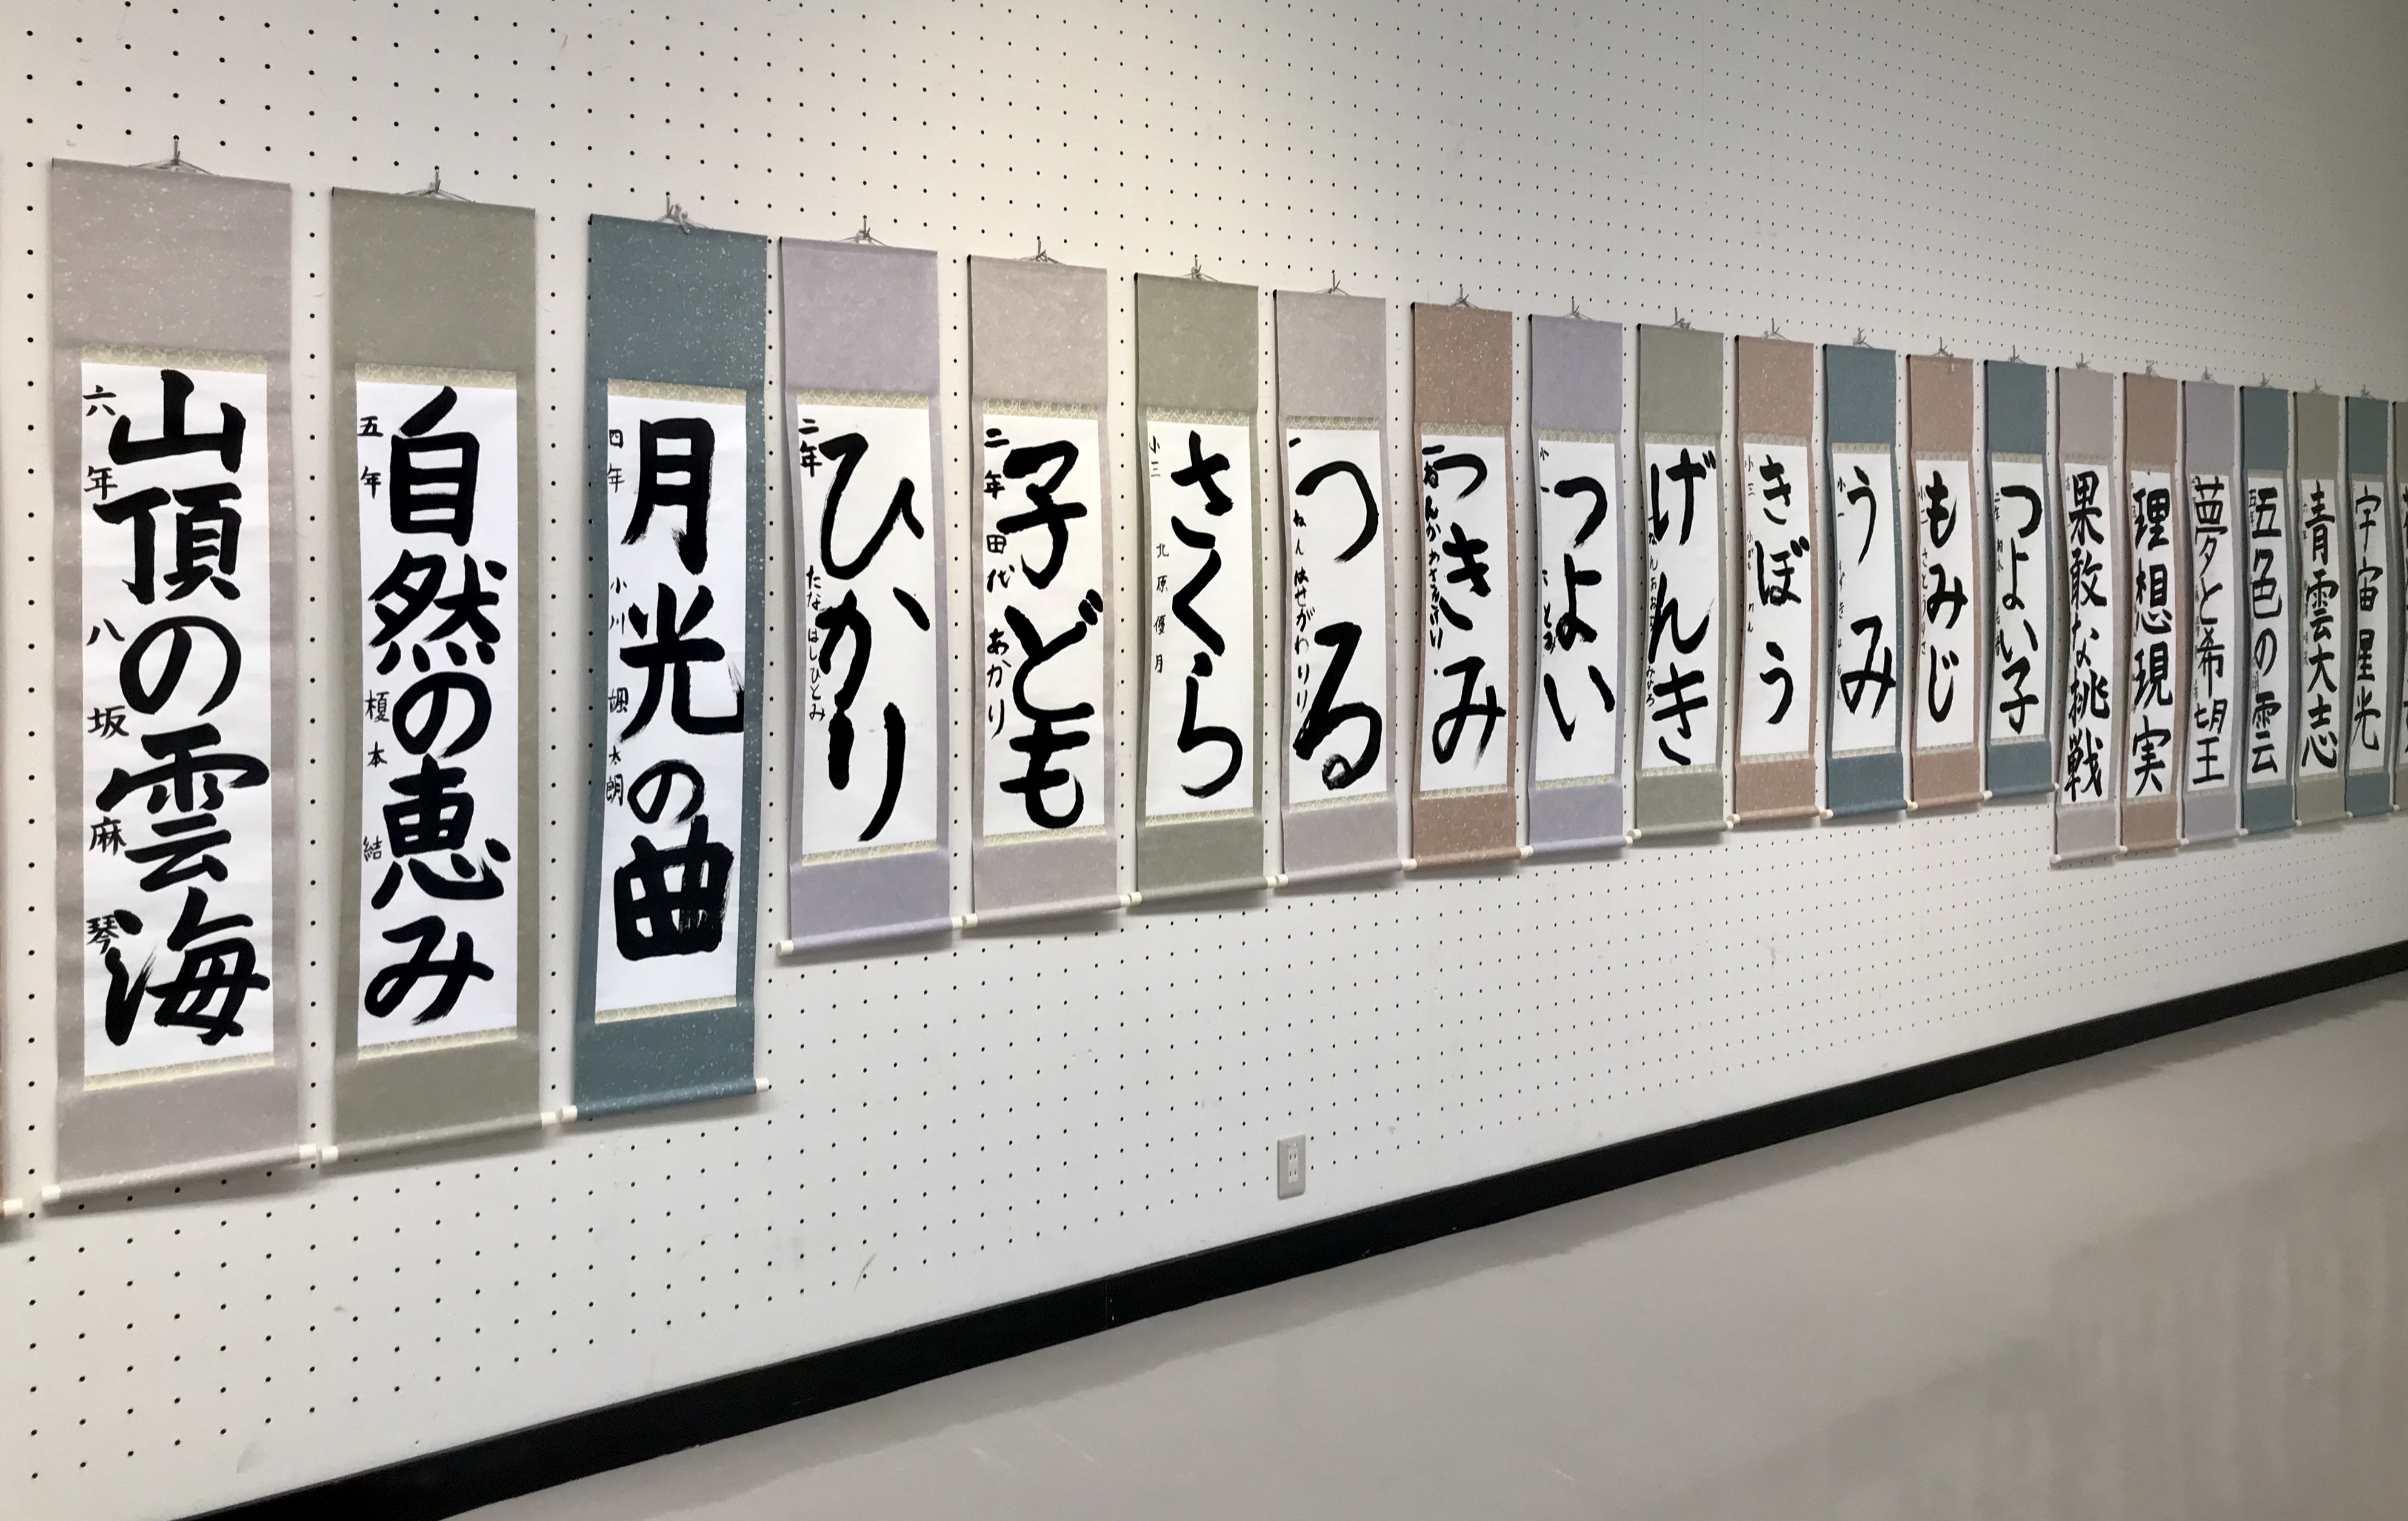 山頂の雲海
六年 八坂麻琴
自然の恵み
五年 榎本 結
月光の曲
四年 小川 颯太朗
ひかり
二年 たなはしひとみ
子ども
二年 田代 あかり
さくら
小三 北原優月
つる
一ねん はせがわりり
つきみ
つよい
げんき
きぼう
うみ
もみじ
つよい子
果敢な挑戦
理想現実
夢と希望
五色の雲
青雲大志
宇宙星光